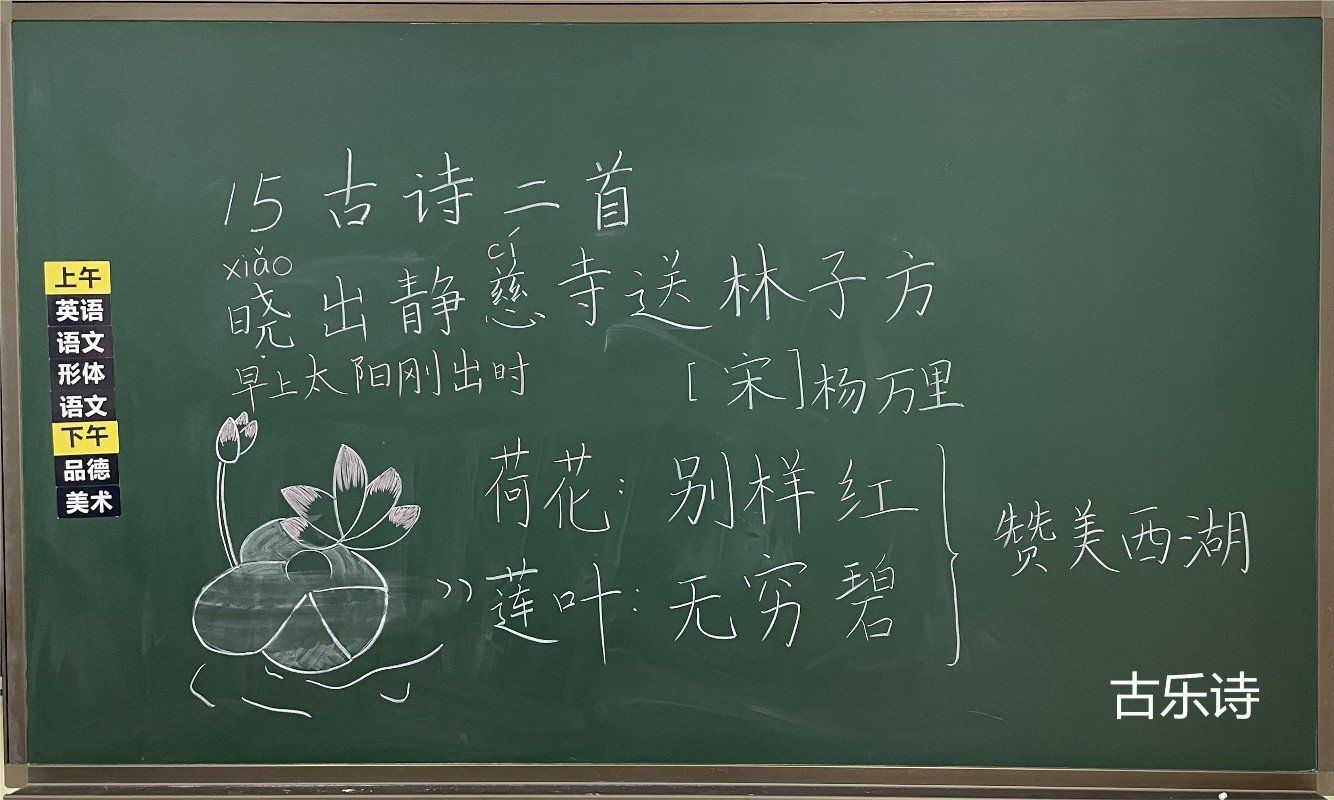 15 古诗二首
xiǎo cí
晓出静慈寺送林子方
早上太阳刚出时
[宋]杨万里
荷花：别样红
莲叶：无穷碧
赞美西湖
上午
英语
语文
形体
语文
下午
品德
美术
古乐诗